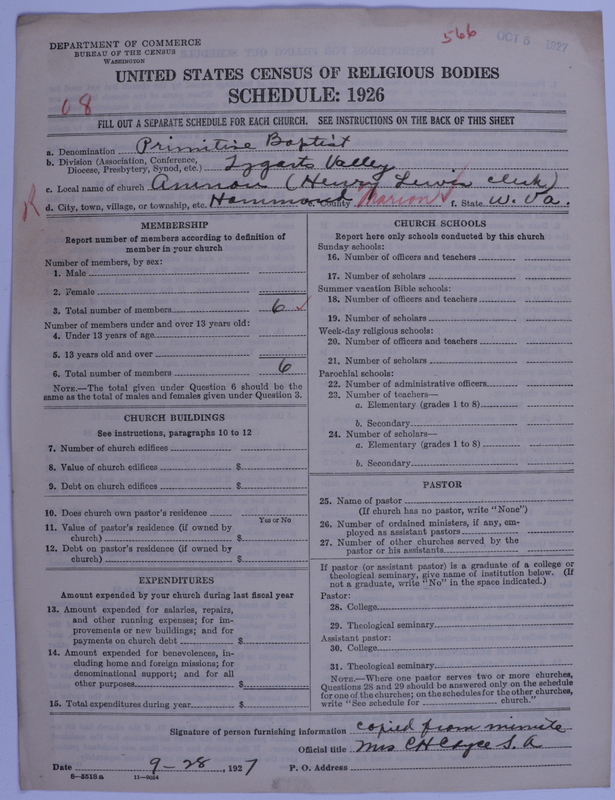 566 OCT 5 1927
DEPARTMENT OF COMMERCE
BUREAU OF THE CENSUS
WASHINGTON
UNITED STATES CENSUS OF RELIGIOUS BODIES
SCHEDULE: 1926
08
FILL OUT A SEPARATE SCHEDULE FOR EACH CHURCH. SEE INSTRUCTIONS ON THE BACK OF THIS SHEET
a. Denomination Primitive Baptist
b. Division (Association, Conference,
Diocese, Presbytery, Synod, etc.) Tygarts Valley
c. Local name of church Ammon (Henry Lewis clerk)
R d. City, town, village, or township, etc. Hammond e. County Marion f. State W. Va.
MEMBERSHIP
Report number of members according to definition of
member in your church
Number of members, by sex:
1. Male
2. Female
3. Total number of members 6 ✓
Number of members under and over 13 years old:
4. Under 13 years of age
5. 13 years old and over
6. Total number of members 6
NOTE.—The total given under Question 6 should be the
same as the total of males and females given under Question 3.
CHURCH BUILDINGS
See instructions, paragraphs 10 to 12
7. Number of church edifices
8. Value of church edifices $
9. Debt on church edifices $
10. Does church own pastor's residence
Yes or No
11. Value of pastor's residence (if owned by
church) $
12. Debt on pastor's residence (if owned by
church) $
EXPENDITURES
Amount expended by your church during last fiscal year
13. Amount expended for salaries, repairs,
and other running expenses; for im-
provements or new buildings; and for
payments on church debt $
14. Amount expended for benevolences, in-
cluding home and foreign missions; for
denominational support; and for all
other purposes $
15. Total expenditures during year $
CHURCH SCHOOLS
Report here only schools conducted by this church
Sunday schools:
16. Number of officers and teachers
17. Number of scholars
Summer vacation Bible schools:
18. Number of officers and teachers
19. Number of scholars
Week-day religious schools:
20. Number of officers and teachers
21. Number of scholars
Parochial schools:
22. Number of administrative officers
23. Number of teachers—
a. Elementary (grades 1 to 8)
b. Secondary
24. Number of scholars—
a. Elementary (grades 1 to 8)
b. Secondary
PASTOR
25. Name of pastor
(If church has no pastor, write "None")
26. Number of ordained ministers, if any, em-
ployed as assistant pastors
27. Number of other churches served by the
pastor or his assistants
If pastor (or assistant pastor) is a graduate of a college or
theological seminary, give name of institution below. (If
not a graduate, write "No" in the space indicated.)
Pastor:
28. College
29. Theological seminary
Assistant pastor:
30. College
31. Theological seminary
NOTE.—Where one pastor serves two or more churches,
Questions 28 and 29 should be answered only on the schedule
for one of the churches; on the schedules for the other churches,
write "See schedule for church."
Signature of person furnishing information copied from minute
Official title Mrs C H Cayce S. A
Date 9-28, 1927 P. O. Address
8-5518a 11-9054